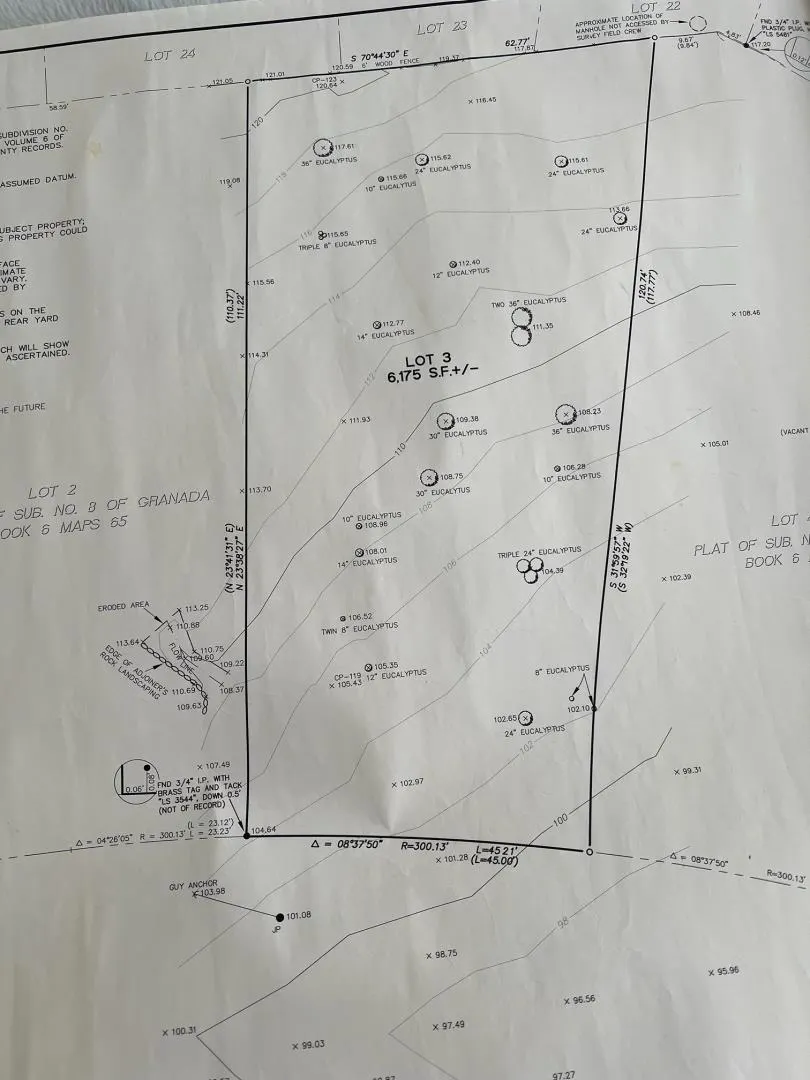 LOT 22
LOT 23
LOT 24
APPROXIMATE LOCATION OF
MANHOLE NOT ACCESSED BY
SURVEY FIELD CREW
FND 3/4" I.P.
PLASTIC PLUG,
"LS 5461"
117.20
4.83'
9.67
(9.84')
62.77'
117.87
S 70°44'30" E
6' WOOD FENCE
119.37
120.59
CP-123
120.64
121.01
121.05
58.59'
120
116.45
SUBDIVISION NO.
VOLUME 6 OF
NTY RECORDS.
ASSUMED DATUM.
UBJECT PROPERTY;
G PROPERTY COULD
FACE
IMATE
VARY.
ED BY
S ON THE
REAR YARD
CH WILL SHOW
ASCERTAINED.
HE FUTURE
117.61
36" EUCALYPTUS
115.62
24" EUCALYPTUS
115.61
24" EUCALYPTUS
115.66
10" EUCALYTUS
118
119.08
113.66
24" EUCALYPTUS
116
115.65
TRIPLE 8" EUCALYPTUS
112.40
12" EUCALYPTUS
115.56
114
(110.37')
111.22'
120.74'
(117.77')
TWO 36" EUCALYPTUS
111.35
112.77
14" EUCALYPTUS
108.46
114.31
LOT 3
6,175 S.F.+/-
112
111.93
109.38
30" EUCALYPTUS
108.23
36" EUCALYPTUS
110
105.01
(VACANT
106.28
10" EUCALYPTUS
108.75
30" EUCALYTUS
113.70
LOT 2
F SUB. NO. 8 OF GRANADA
OOK 6 MAPS 65
108
10" EUCALYPTUS
108.96
108.01
14" EUCALYPTUS
(N 23°41'31" E)
N 23°38'27" E
S 31°59'57" W
(S 32°19'22" W)
LOT
PLAT OF SUB. N
BOOK 6
106
TRIPLE 24" EUCALYPTUS
104.39
102.39
ERODED AREA
113.25
110.88
113.64
FLOW LINE
110.75
109.60
109.22
EDGE OF ADJOINER'S
ROCK LANDSCAPING
110.69
108.37
109.63
106.52
TWIN 8" EUCALYPTUS
104
105.35
CP-119 12" EUCALYPTUS
105.43
8" EUCALYPTUS
102.10
102.65
24" EUCALYPTUS
102
107.49
0.06'
0.08'
FND 3/4" I.P. WITH
BRASS TAG AND TACK
"LS 3544", DOWN 0.5'
(NOT OF RECORD)
102.97
99.31
100
(L = 23.12')
Δ = 04°26'05" R = 300.13' L = 23.23'
104.64
Δ = 08°37'50" R=300.13' L=45.21'
101.28 (L=45.00')
Δ = 08°37'50"
R=300.13'
GUY ANCHOR
103.98
101.08
JP
98
98.75
95.96
96.56
97.49
100.31
99.03
97.27